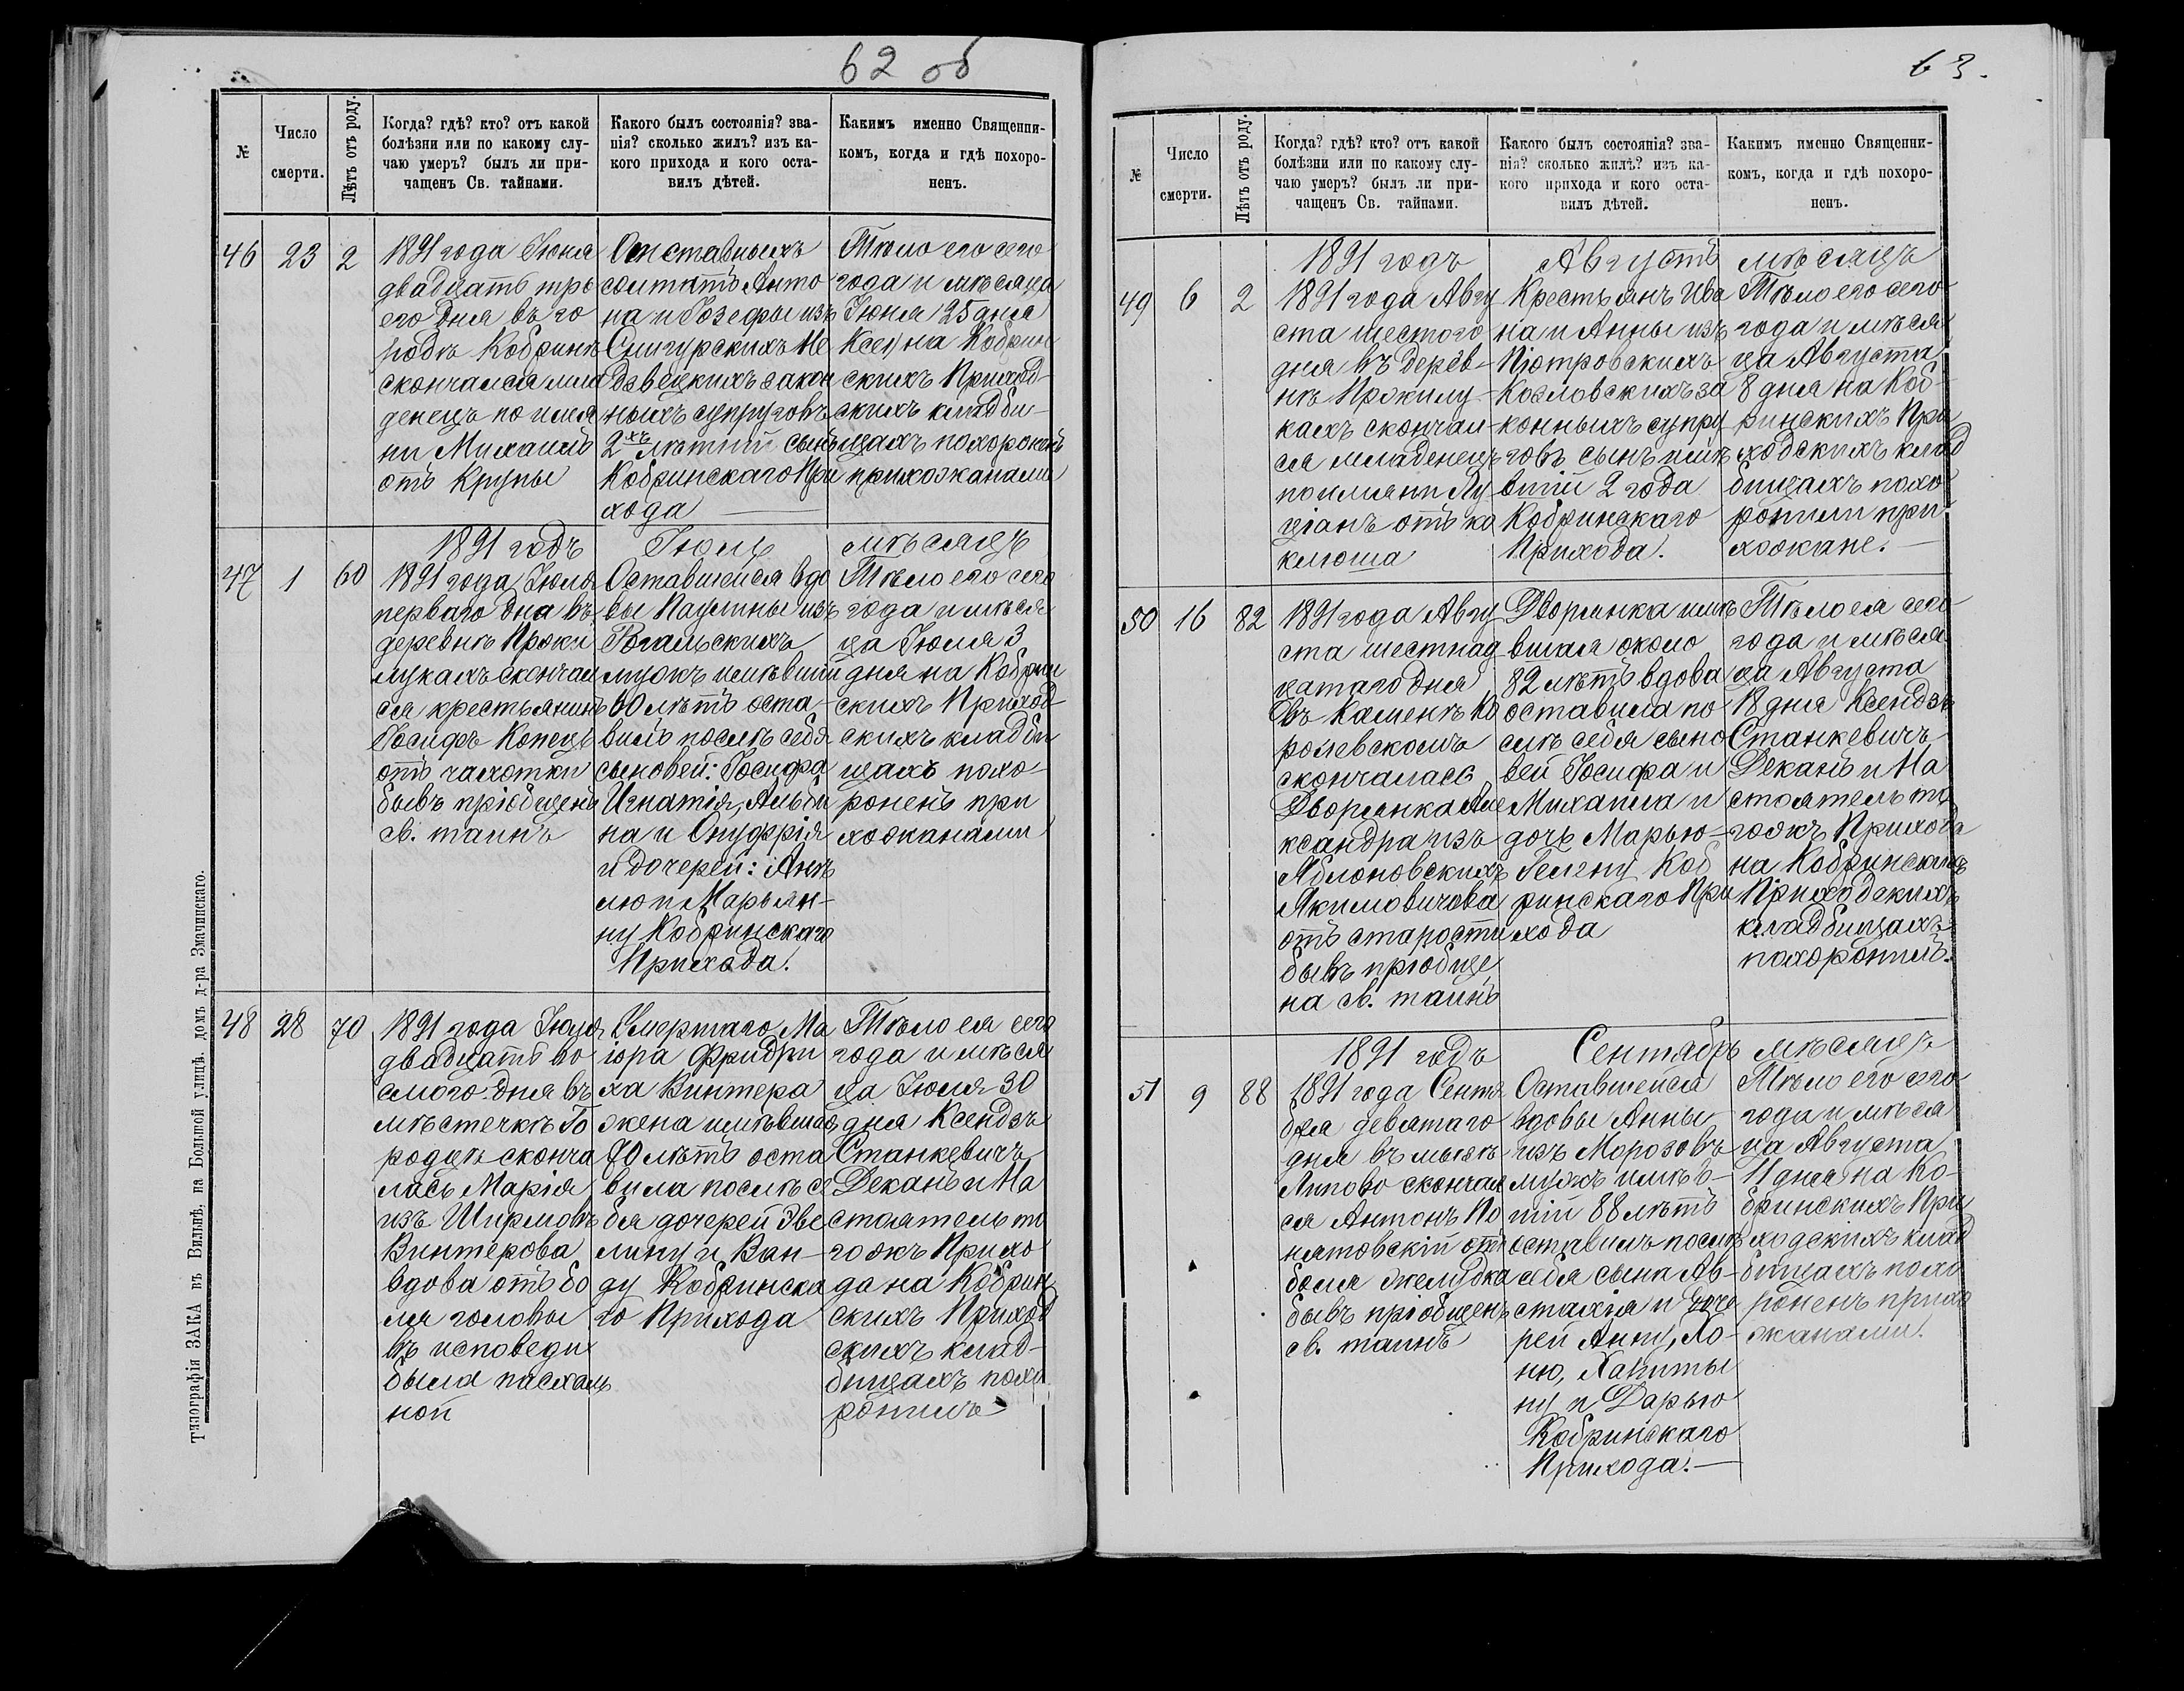 62 об
№
Число
смерти.
Лѣтъ отъ роду.
Когда? гдѣ? кто? отъ какой
болѣзни или по какому слу-
чаю умеръ? былъ ли при-
чащенъ Св. тайнами.
Какого былъ состоянія? зва-
нія? сколько жилъ? изъ ка-
кого прихода и кого оста-
вилъ дѣтей.
Какимъ именно Священни-
комъ, когда и гдѣ похоро-
ненъ.
46
23
2
1891 года Іюня
двадцать тре
его дня въ го
родѣ Кобринѣ
скончался мла
денецъ по име
ни Михаилъ
отъ крупы
Отставныхъ
солтатъ Анто
на и Іозефы изъ
Снигурскихъ Не
дзвецкихъ закон
ныхъ супруговъ
2хъ лѣтній сынъ
Кобринскаго При
хода
Тѣло его сего
года и мѣсяца
Іюня 25 дня
на Кобрин
скихъ Приход-
скихъ кладби-
щахъ похороненъ
прихожанами
1891 годъ
Іюль
мѣсяцъ
47
1
60
1891 года Іюля
перваго дня въ
деревнѣ Прожи
лукахъ скончал
ся крестьянинъ
Іосифъ Конецъ
отъ чахотки
бывъ пріобщенъ
св. таинъ
Оставшейся вдо
вы Паулины изъ
Рогальскихъ
мужъ имѣвшій
60 лѣтъ оста-
вилъ послѣ себя
сыновей: Іосифа
Игнатія, Альби
на и Онуфрія
и дочерей: Анѣ
лю и Марьян-
ну Кобринскаго
Прихода.
Тѣло его сего
года и мѣся
ца Іюля 3
дня на Кобрин
скихъ Приход-
скихъ кладби
щахъ похо-
роненъ при
хожанами
48
28
70
1891 года Іюля
двадцать во
смого дня въ
мѣстечкѣ Го
родцѣ сконча
лась Марія
изъ Ширмовъ
Винтерова
вдова отъ бо
ли головы
въ исповеди
была пасхаль
ной
Умертаго Ма
іора Фридри
ха Винтера
жена имѣвшая
70 лѣтъ оста
вила послѣ се
бя дочерей Эве
лину и Ван-
ду Кобринска
го Прихода
Тѣло ея сего
года и мѣся
ца Іюля 30
дня Ксендзъ
Станкевичъ
Деканъ и На
стоятель то
гожъ Прихо
да на Кобрин
скихъ Приход
скихъ клад-
бищахъ похо
ронилъ
Типографія ЗАКА въ Вильнѣ, на Большой улицѣ, домъ д-ра Змачинскаго.
63.
№
Число
смерти.
Лѣтъ отъ роду.
Когда? гдѣ? кто? отъ какой
болѣзни или по какому слу-
чаю умеръ? былъ ли при-
чащенъ Св. тайнами.
Какого былъ состоянія? зва-
нія? сколько жилъ? изъ ка-
кого прихода и кого оста-
вилъ дѣтей.
Какимъ именно Священни-
комъ, когда и гдѣ похоро-
ненъ.
1891 годъ
Августъ
мѣсяцъ
49
6
2
1891 года Авгу
ста шестого
дня въ дерев-
нѣ Прожилу-
кахъ скончал-
ся младенецъ
по имяни Лу
ціанъ отъ ко
клюша
Крестьянъ Ива
на и Анны изъ
Піотровскихъ
Козловскихъ за
конныхъ супру
говъ сынъ имѣ
вшій 2 года
Кобринскаго
Прихода.
Тѣло его сего
года и мѣся
ца Августа
8 дня на Коб-
ринскихъ При
ходскихъ клад
бищахъ похо
ронили при
хожане.
50
16
82
1891 года Авгу
ста шестнад
цатаго дня
въ Каменкѣ Ко
ролевскомъ
скончалась
Дворянка Але
ксандра изъ
Яблоновскихъ
Якимовичова
отъ старости
бывъ пріобще
на св. таинъ
Дворянка имѣ
вшая около
82 лѣтъ вдова
оставила по
слѣ себя сыно
вей Іосифа и
Михаила и
дочь Марью-
Гелену Коб
ринскаго При
хода
Тѣло ея сего
года и мѣся
ца Августа
18 дня Ксендзъ
Станкевичъ
Деканъ и На
стоятель то
гожъ Прихода
на Кобринскихъ
Приходскихъ
кладбищахъ
похоронилъ.
1891 годъ
Сентябрь
мѣсяцъ
51
9
88
1891 года Сентя
бря девятаго
дня въ мызѣ
Липово скончал
ся Антонъ По
нятовскій отъ
боля желудка
бывъ пріобщенъ
св. таинъ
Оставшейся
вдовы Анны
изъ Морозовъ
мужъ имѣв-
шій 88 лѣтъ
оставилъ послѣ
себя сына Ав-
стахія и доче
рей Анну, Хо-
ню,
ну и Дарью
Кобринскаго
Прихода.
Тѣло его сего
года и мѣся
ца Августа
11 дня на Ко-
бринскихъ При
ходскихъ клад
бищахъ похо
роненъ прихо
жанами.